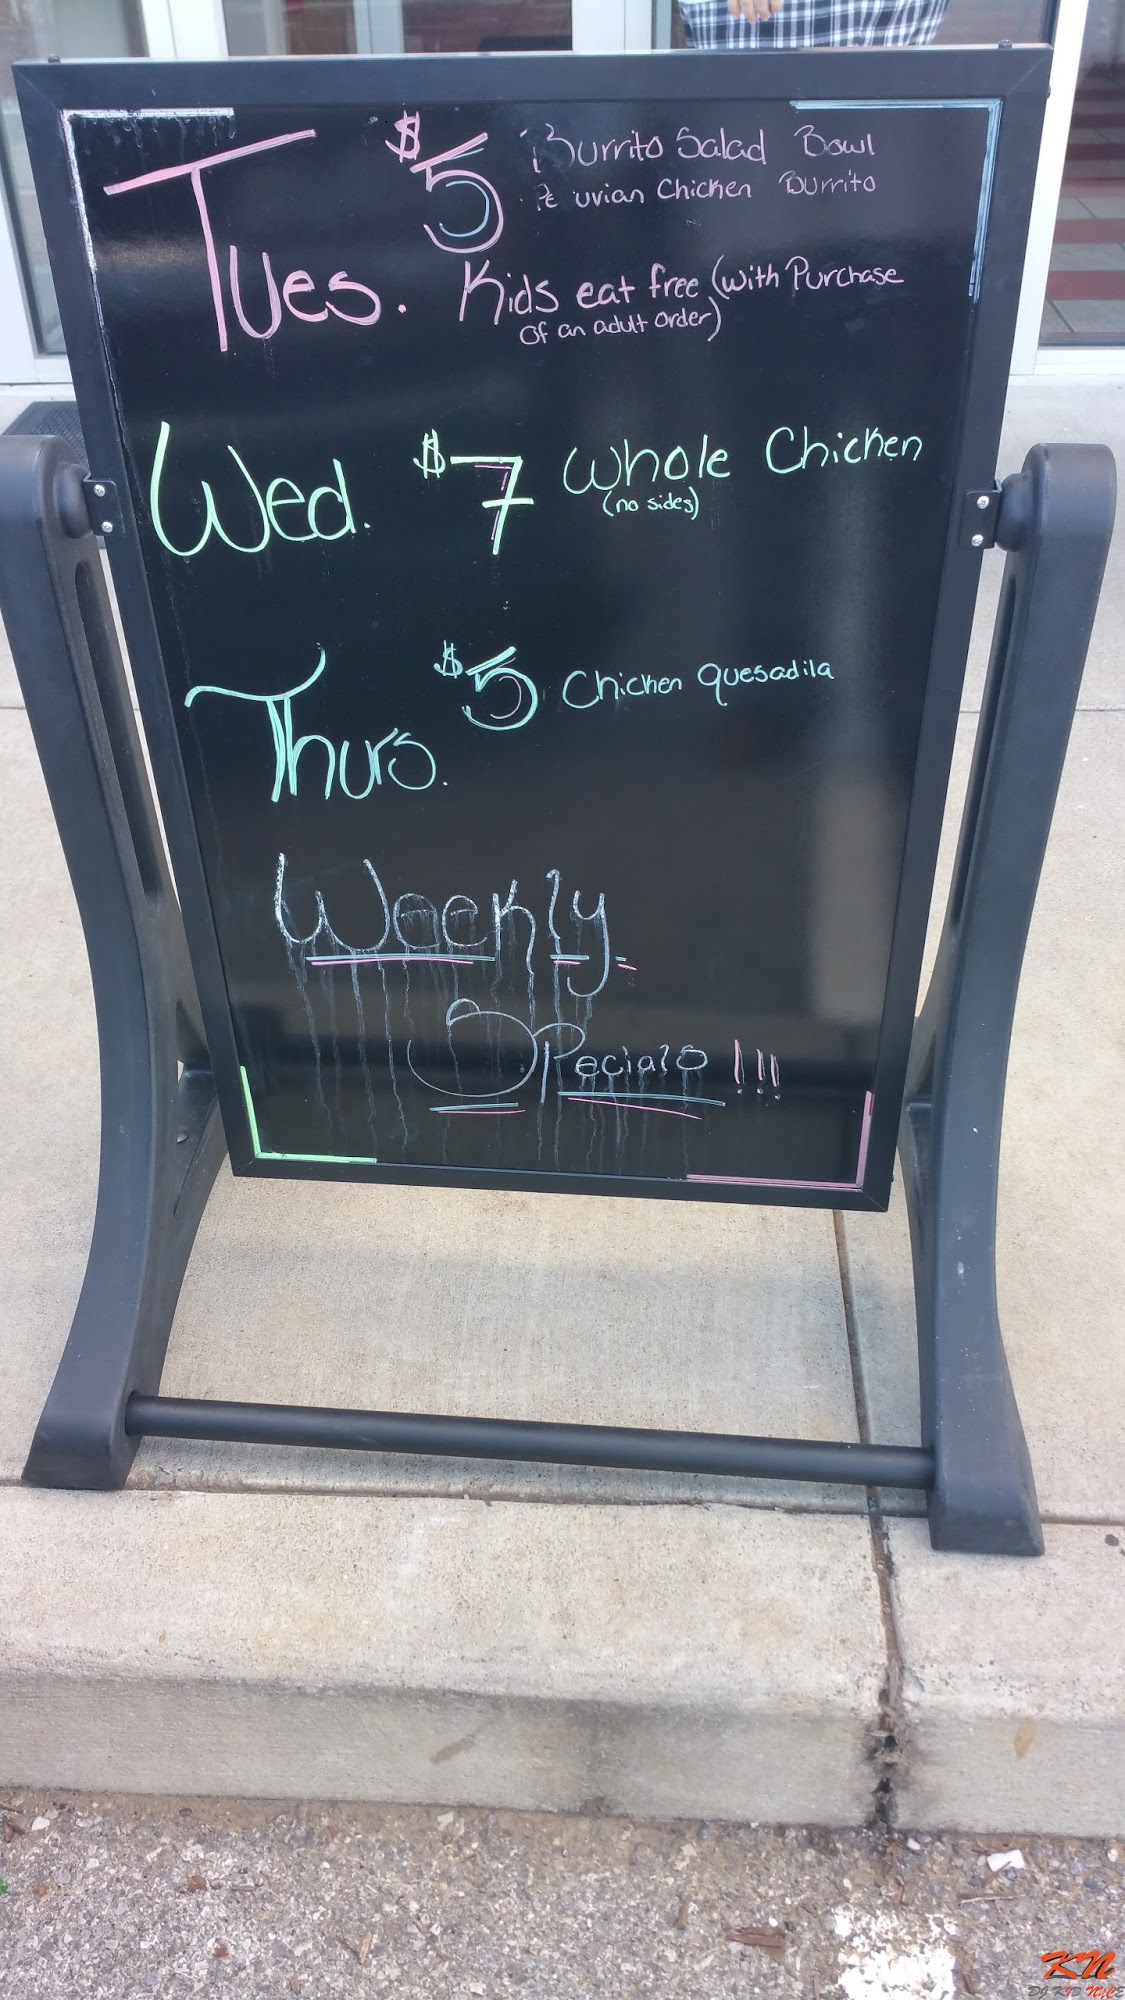 Tues. $5 Burrito Salad Bowl
Peruvian Chicken Burrito
Kids eat free (with Purchase
of an adult order)
Wed. $7 Whole Chicken
(no sides)
Thurs. $5 Chicken Quesadila
Weekly
Specials!!!
KN
DJ KID NYCE